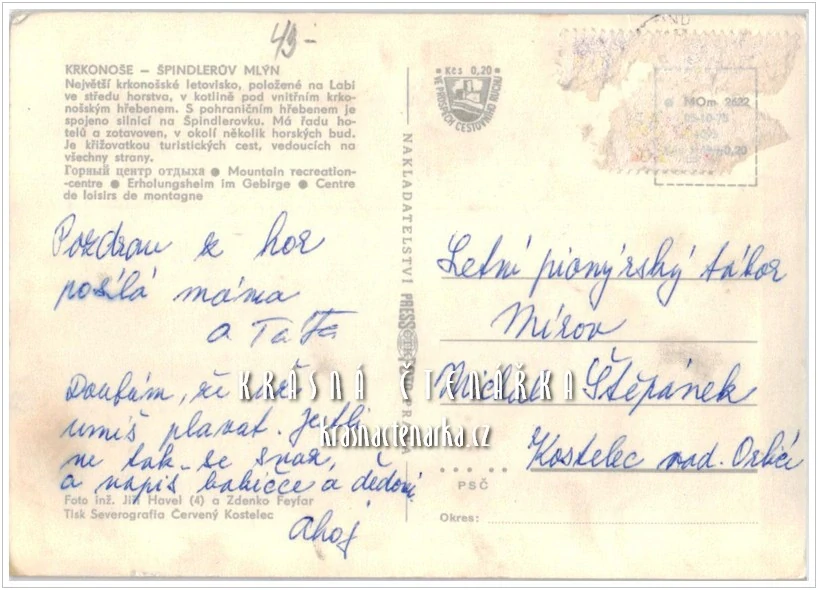 43-
KRKONOŠE – ŠPINDLERŮV MLÝN
Největší krkonošské letovisko, položené na Labi
ve středu horstva, v kotlině pod vnitřním krko-
nošským hřebenem. S pohraničním hřebenem je
spojeno silnicí na Špindlerovku. Má řadu ho-
telů a zotavoven, v okolí několik horských bud.
Je křižovatkou turistických cest, vedoucích na
všechny strany.
Горный центр отдыха ● Mountain recreation-
-centre ● Erholungsheim im Gebirge ● Centre
de loisirs de montagne
Pozdrav z hor
posílá máma
a Táťa
Doufám, že už
umíš plavat. Jestli
ne tak se snaž,
a napiš babičce a dědovi.
Ahoj
Foto inž. Jiří Havel (4) a Zdenko Feyfar
Tisk Severografia Červený Kostelec
Kčs 0,20
VE PROSPĚCH CESTOVNÍHO RUCHU
NAKLADATELSTVÍ PRESSFOTO
MOm 2622
0,20
Letní pionýrský tábor
Mírov
Michal Štěpánek
Kostelec nad. Orlicí
PSČ
Okres:
KRÁSNÁ ČTENÁŘKA
krasnactenarka.cz